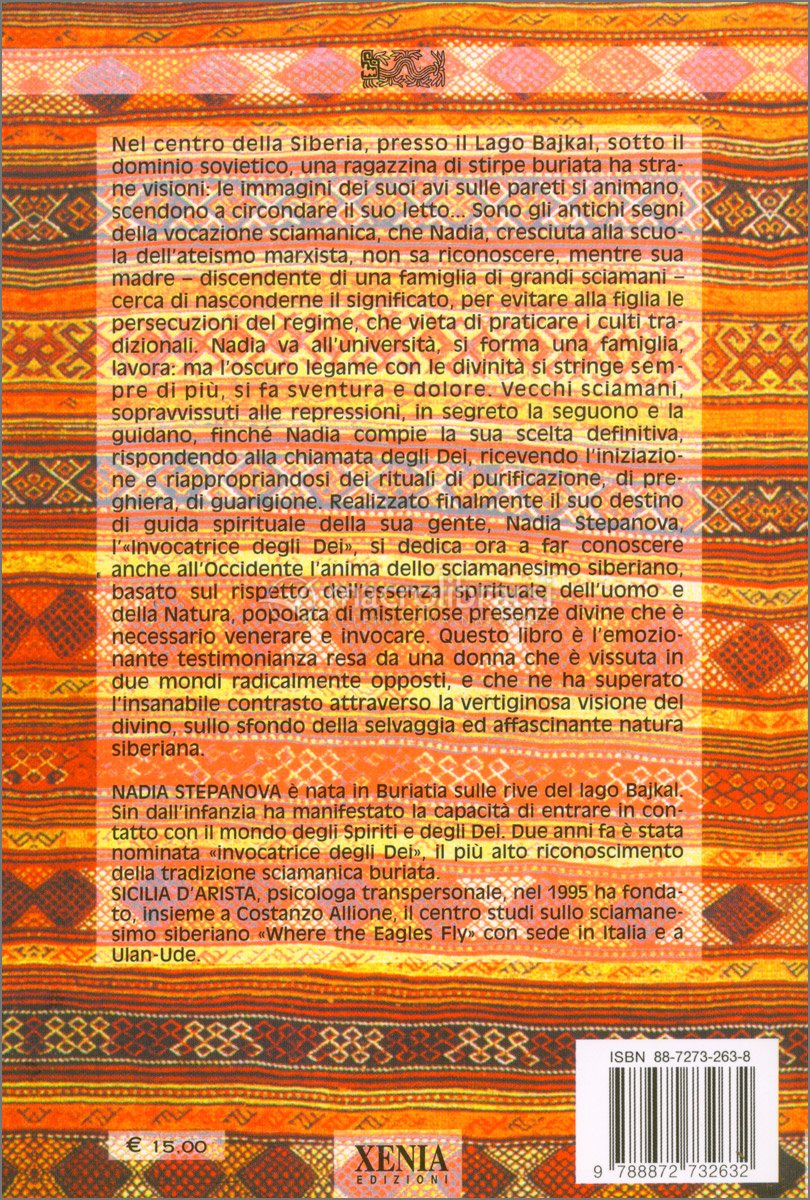 Nel centro della Siberia, presso il Lago Bajkal, sotto il
dominio sovietico, una ragazzina di stirpe buriata ha stra-
ne visioni: le immagini dei suoi avi sulle pareti si animano,
scendono a circondare il suo letto... Sono gli antichi segni
della vocazione sciamanica, che Nadia, cresciuta alla scuo-
la dell'ateismo marxista, non sa riconoscere, mentre sua
madre – discendente di una famiglia di grandi sciamani –
cerca di nasconderne il significato, per evitare alla figlia le
persecuzioni del regime, che vieta di praticare i culti tra-
dizionali. Nadia va all'università, si forma una famiglia,
lavora: ma l'oscuro legame con le divinità si stringe sem-
pre di più, si fa sventura e dolore. Vecchi sciamani,
sopravvissuti alle repressioni, in segreto la seguono e la
guidano, finché Nadia compie la sua scelta definitiva,
rispondendo alla chiamata degli Dei, ricevendo l'iniziazio-
ne e riappropriandosi dei rituali di purificazione, di pre-
ghiera, di guarigione. Realizzato finalmente il suo destino
di guida spirituale della sua gente, Nadia Stepanova,
l'«Invocatrice degli Dei», si dedica ora a far conoscere
anche all'Occidente l'anima dello sciamanesimo siberiano,
basato sul rispetto dell'essenza spirituale dell'uomo e
della Natura, popolata di misteriose presenze divine che è
necessario venerare e invocare. Questo libro è l'emozio-
nante testimonianza resa da una donna che è vissuta in
due mondi radicalmente opposti, e che ne ha superato
l'insanabile contrasto attraverso la vertiginosa visione del
divino, sullo sfondo della selvaggia ed affascinante natura
siberiana.
NADIA STEPANOVA è nata in Buriatia sulle rive del lago Bajkal.
Sin dall'infanzia ha manifestato la capacità di entrare in con-
tatto con il mondo degli Spiriti e degli Dei. Due anni fa è stata
nominata «invocatrice degli Dei», il più alto riconoscimento
della tradizione sciamanica buriata.
SICILIA D'ARISTA, psicologa transpersonale, nel 1995 ha fonda-
to, insieme a Costanzo Allione, il centro studi sullo sciamane-
simo siberiano «Where the Eagles Fly» con sede in Italia e a
Ulan-Ude.
ISBN 88-7273-263-8
9 788872 732632
€ 15,00
XENIA
EDIZIONI